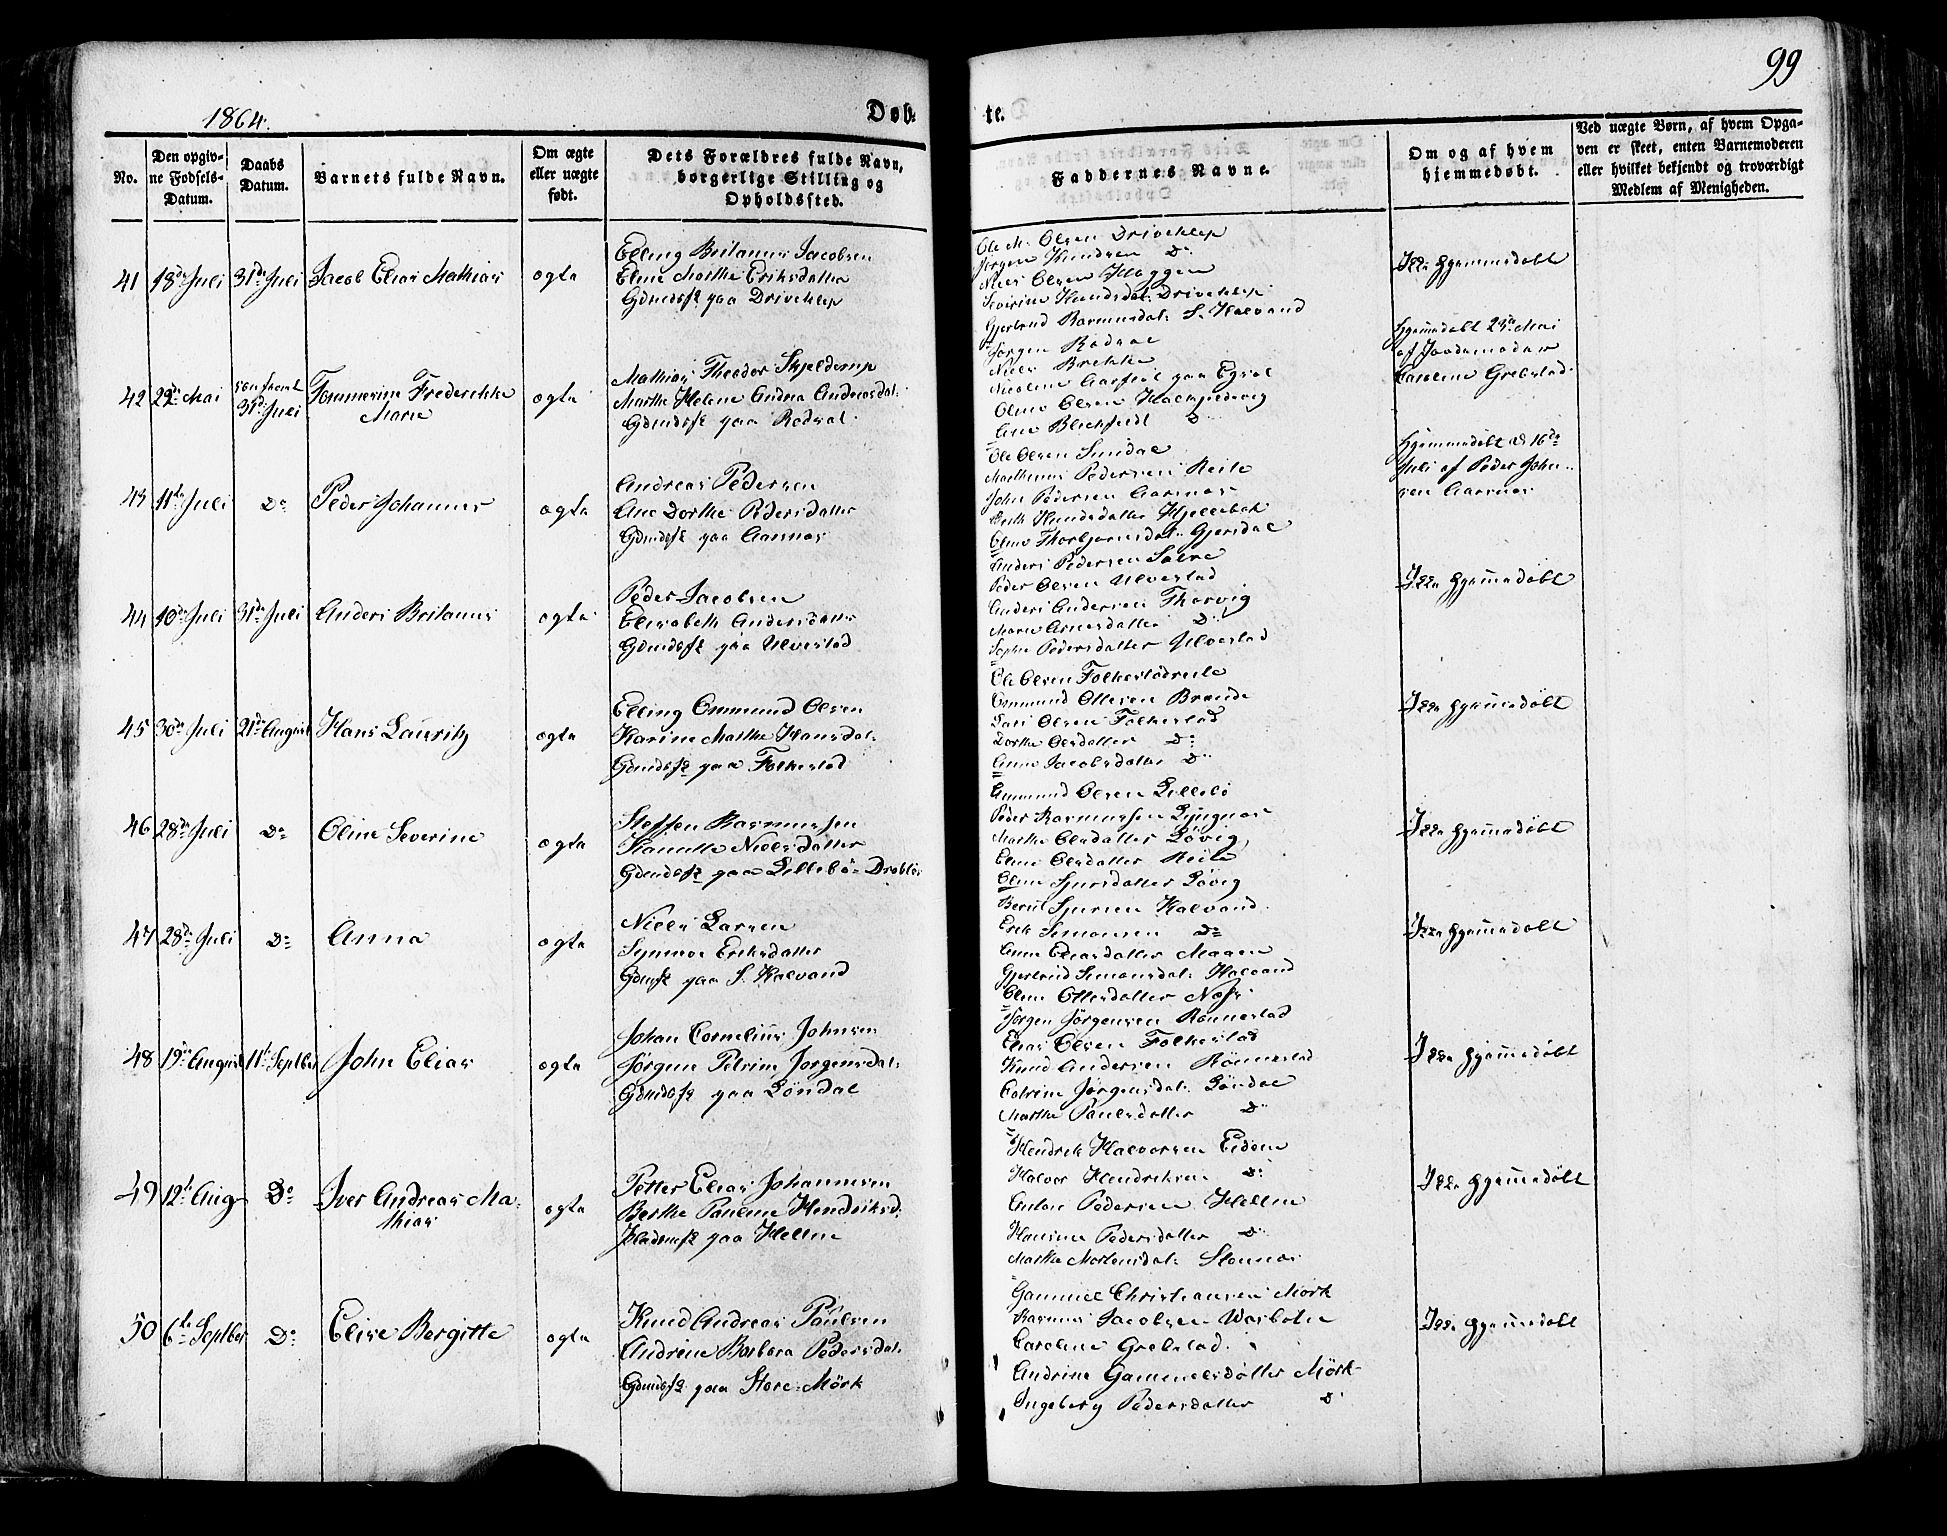 1864.
Døb-
te.
99
No.
Den opgiv-
ne Fødsels-
Datum.
Daabs
Datum.
Barnets fulde Navn.
Om ægte
eller uægte
født.
Dets Forældres fulde Navn,
borgerlige Stilling og
Opholdssted.
Faddernes Navne.
Om og af hvem
hjemmedøbt.
Ved uægte Børn, af hvem Opga-
ven er skeet, enten Barnemoderen
eller hvilket bekjendt og troværdigt
Medlem af Menigheden.
41 18de Juli 31te Juli Jacob Elias Mathias ægte
Elling Britanus Jacobsen
Eline Marthe Eriksdatter
Gdmdsfk paa Driveklep
Ole M. Olsen Driveklep
Jørgen Knudsen Do
Niels Olsen Haggen
Severine Knudsdat: Driveklep
Gjertrud Rasmusdat: S. Halvand
Ikke hjemmedøbt
42 22de Mai 31te Juli Tommerine Frederikke
Marie
ægte
Mathias Theodor Skjelderup
Marthe Helene Andrea Andreasdat:
Gdmdsfk paa Rødval
Jørgen Rødval
Niels Brekke
Nicoline Aarflot paa Egset
Oline Olsen
Ane Blichfeldt Do
Hjemmedøbt 23de Mai
af Jordemoder
Caroline Grebstad
43 11te Juli Do Peder Johannes ægte
Andreas Pedersen
Ane Dorthe Pedersdatter
Gdmdsfk paa Aarnes
Ole Olsen Sundal
Mathias Pedersen Reite
John Pedersen Aarnes
Knudsdatter Hjellebak
Oline Thorbjørnsdat: Gjersdal
Hjemmedøbt d 16de
Juli af Peder John-
sen Aarnes
44 10de Juli 31te Juli Anders Britanus ægte
Peder Jacobsen
Elisabeth Andersdatter
Gdmdsfk paa Ulvestad
Anders Pedersen
Peder Olsen Ulvestad
Anders Andersen Thorvig
Marie Arnesdatter Do
Sophie Pedersdatter Ulvestad
Ikke hjemmedøbt
45 30de Juli 21de August Hans Lauritz ægte
Elling Ommund Olsen
Karine Marthe Hansdat:
Gdmdsfk paa Folkestad
Ole Olsen
Ommund Ottesen Brande
Lars Olsen Folkestad
Dorthe Olsdatter Do
Anne Jacobsdatter Do
Ikke hjemmedøbt
46 28de Juli Do Oline Severine ægte
Steffen Rasmussen
Nielsdatter
Gdmdsfk paa Lillebø
Ammund Olsen Lillebø
Peder Rasmussen Lyngnes
Marthe Olsdatter Løvig
Eline Olsdatter Reite
Oline Sjursdatter Løvig
Ikke hjemmedøbt
47 28de Juli Do Anna ægte
Niels Larsen
Synnøe Eriksdatter
Gdmdsfk paa S. Halvand
Bertil Sjursen Halvand
Erik Simonsen Do
Anne Eliasdatter Maaen
Gjertrud Simonsdat: Halvand
Oline Ottesdatter
Ikke hjemmedøbt
48 19de August 11te Septber John Elias ægte
Johan Cornelius Johnsen
Jørgine Petrine Jørgensdat:
Gdmdsfk paa Løndal
Jørgen Jørgensen Rønnestad
Elias Olsen Folkestad
Knud Andersen Rønnestad
Catrine Jørgensdat: Løndal
Marthe Paulsdatter Do
Ikke hjemmedøbt
49 12te Aug Do Iver Andreas Ma-
thias
ægte
Petter Elias Johannesen
Berthe Pauline Hendriksd:
paa Hellen
Hendrik Halvorsen Eidem
Halvor Hendriksen Do
Anton Pedersen Hellen
Hansine Pedersdatter Do
Marthe Mortensdat:
Ikke hjemmedøbt
50 6te Septber Do Elise Bergitte ægte
Knud Andreas Paulsen
Andrine Barbara Pedersdat:
Gdmdsfk paa Store-Mørk
Gammel Christiansen Mørk
Rasmus Jacobsen
Caroline Grebstad
Andrine Gammelsdatter Mørk
Ingeborg Pedersdatter Do
Ikke hjemmedøbt